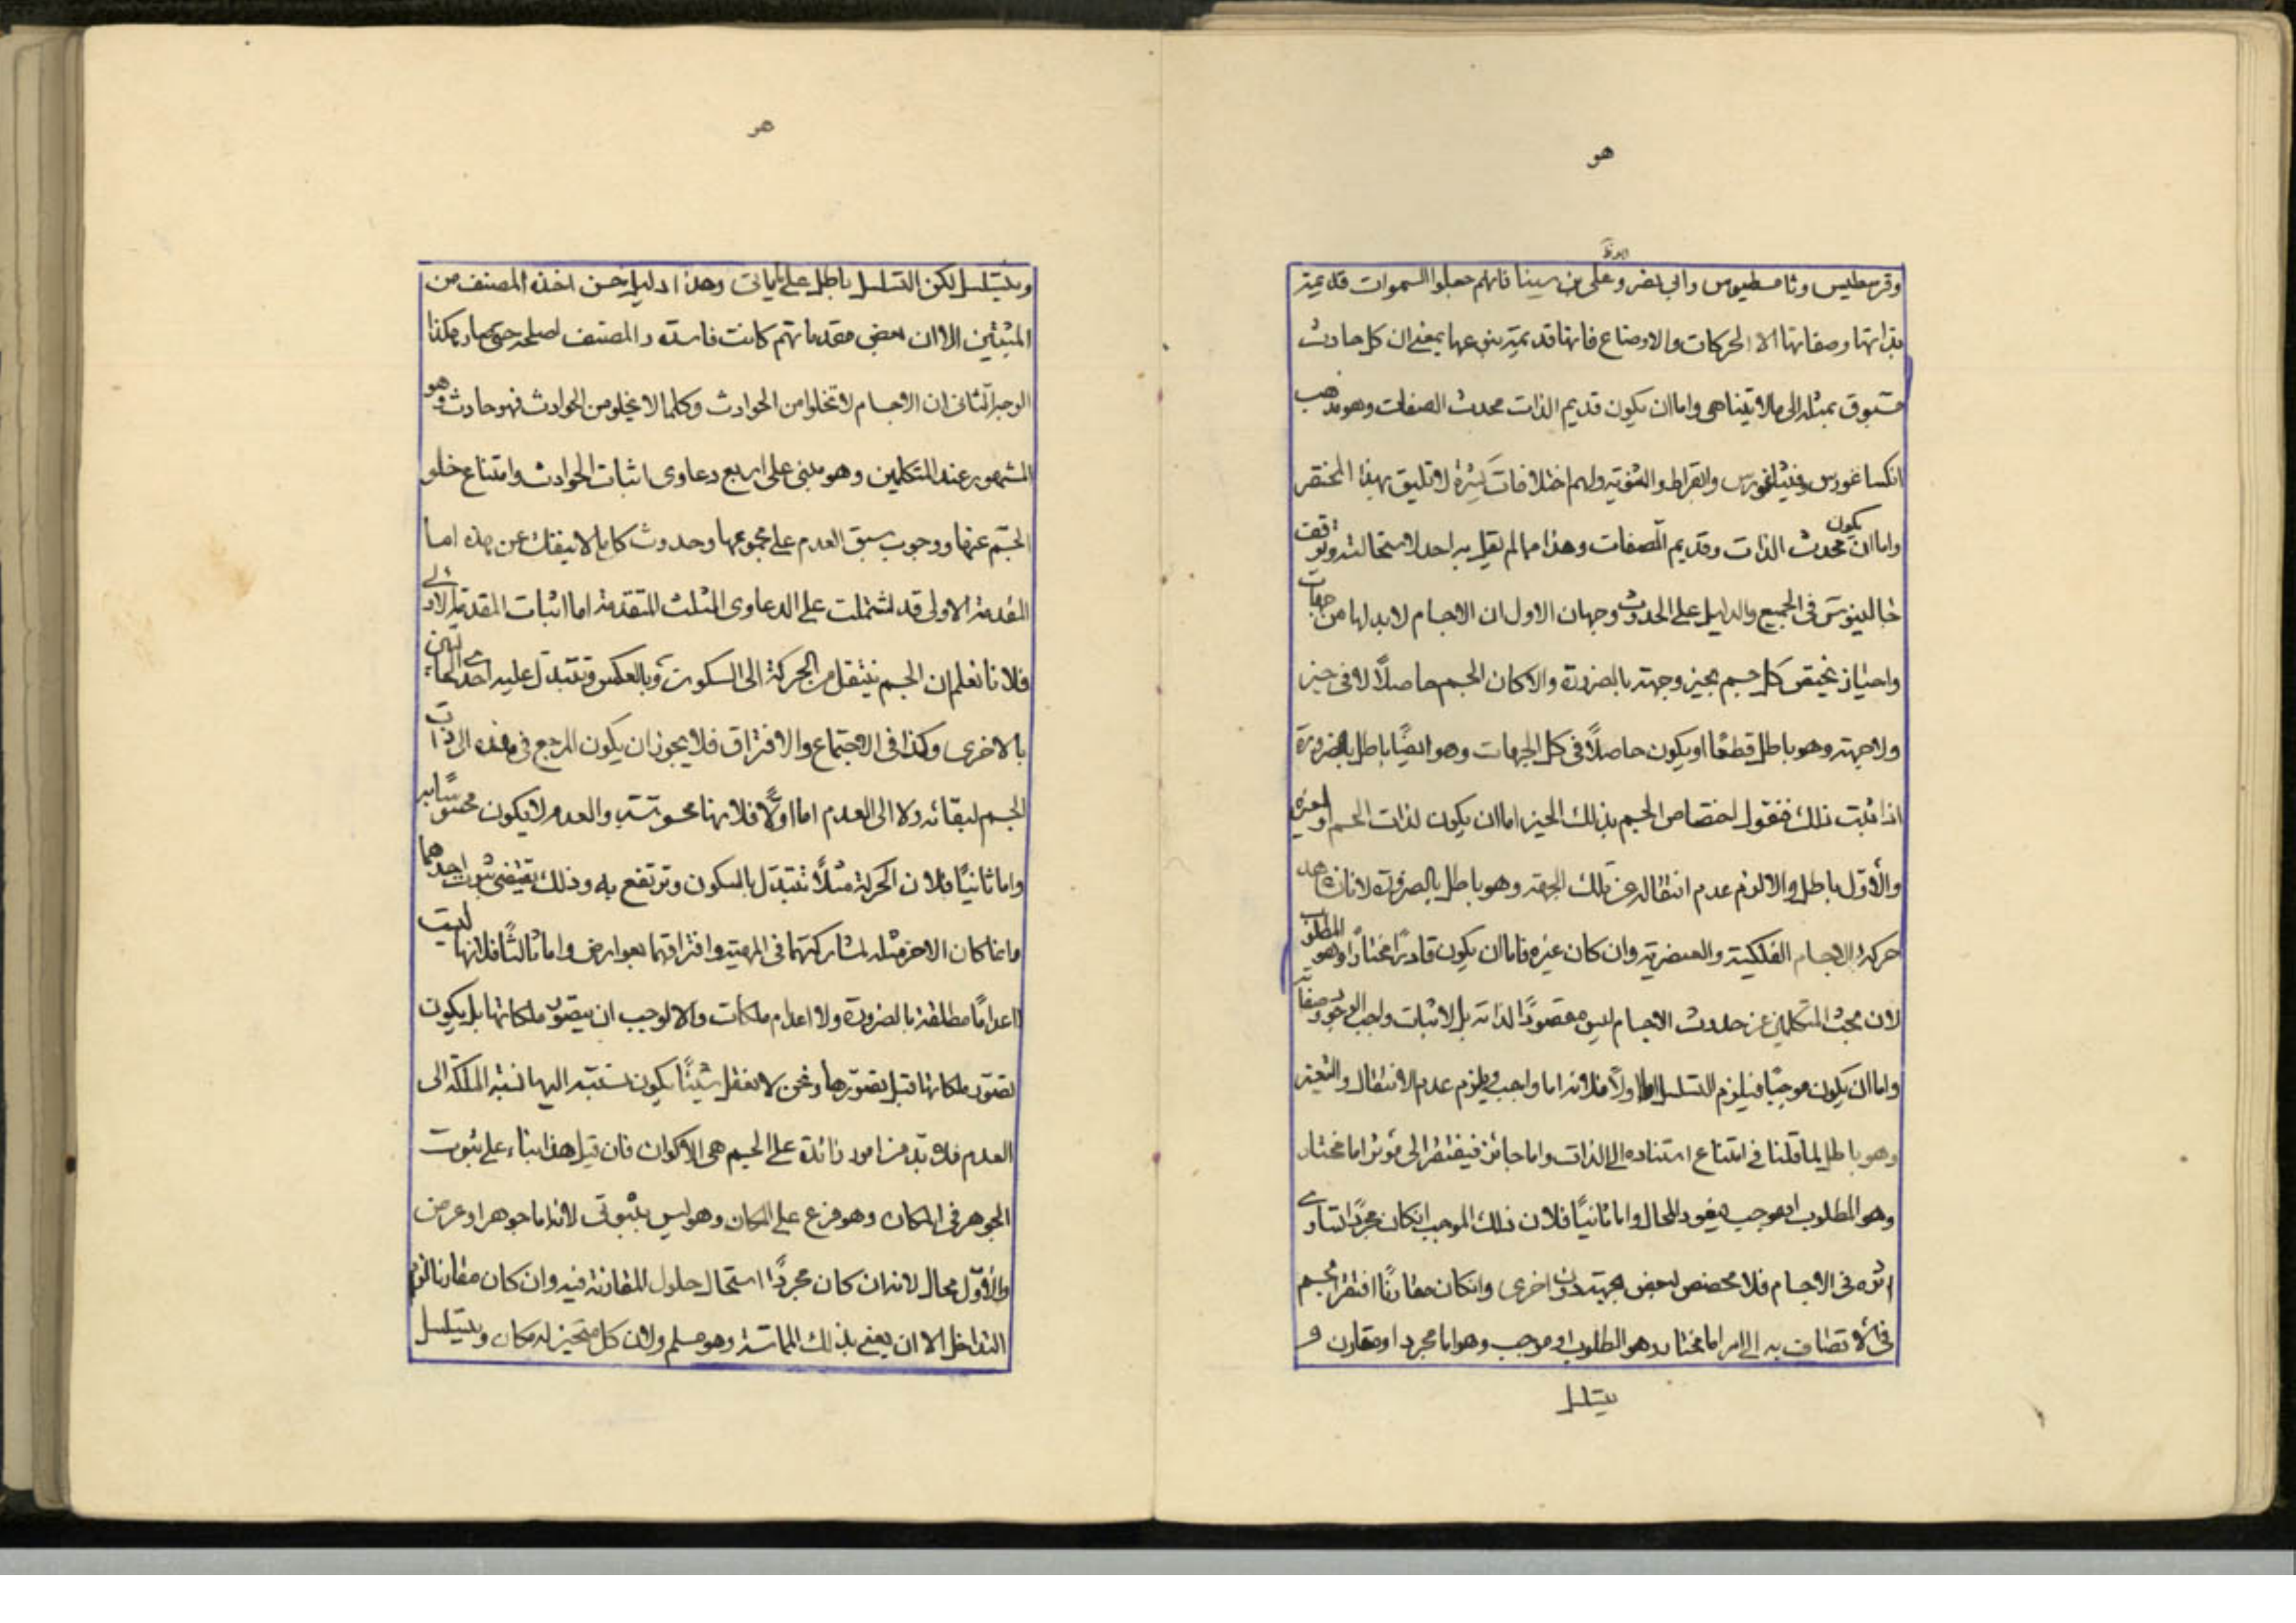 هو
وثامسطيوس وابي نصر وعلي بن سينا فانهم جعلوا السموات قديمة
بذاتها وصفاتها الا الحركات والاوضاع فانها قديمة بنوعها بمعنى ان كل حادث
مسبوق بمثله الى ما لا يتناهى واما ان يكون قديم الذات محدث الصفات وهو مذهب
انكساغورس وفيثاغورس والثنوية ولهم اختلافات كثيرة لا تليق بهذا المختصر
واما ان يكون محدث الذات وقديم الصفات وهذا مما لم يقل به احد لاستحالته وتوقف
جالينوس في الجميع والدليل على الحدوث وجهان الاول ان الاجسام لابد لها من جهات
واحياز يختص كل جسم بحيز وجهة بالضرورة والا كان الجسم حاصلًا لا في حيز
ولا جهة وهو باطل قطعًا او يكون حاصلًا في كل الجهات وهو ايضًا باطل بالضرورة
اذا ثبت ذلك فنقول اختصاص الجسم بذلك الحيز اما ان يكون لذات الجسم او لغيره
والأوّل باطل والا لزم عدم انتقاله عن تلك الجهة وهو باطل بالضرورة لانا نشاهد
حركة الاجسام الفلكية والعنصرية وان كان غيره فاما ان يكون قادرًا مختارًا وهو المطلوب
لان بحث المتكلمين عن حدوث الاجسام ليس مقصودًا لذاته بل لاثبات واجب الوجود وصفاته
واما ان يكون موجبًا فيلزم التسلسل اما اولًا فلانه اما واجب ويلزم عدم الانتقال والتغير
وهو باطل لما قلنا في امتناع استناده الى الذات واما جائز فيفتقر الى مؤثر اما مختار
وهو المطلوب او موجب فيعود المحال واما ثانيًا فلان ذلك الموجب ان كان مجردًا تساوى
اثره في الاجسام فلا مخصص لبعض بجهة دون اخرى وانكان مقارنًا افتقر الجسم
في الاتصاف به الى امر اما مختار وهو المطلوب او موجب وهو اما مجرد او مقارن و
يتسلسل
هو
ويتسلسل لكن التسلسل باطل على ما ياتى وهذا دليل حسن اخذه المصنف من
المثبتين الا ان بعض مقدماتهم كانت فاسدة والمصنف اصلحه حتى صار هكذا
الوجه الثاني ان الاجسام لا تخلوا من الحوادث وكلما لا يخلو من الحوادث فهو حادث وهو
المشهور عند المتكلمين وهو مبني على اربع دعاوى اثبات الحوادث وامتناع خلو
الجسم عنها ووجوب سبق العدم على مجموعها وحدوث كلما لا ينفك عن هذه اما
المقدمة الاولى قد اشتملت على الدعاوى الثلث المتقدمة اما اثبات المقدمة الاولى
فلانا نعلم ان الجسم ينتقل من الحركة الى السكون وبالعكس وتتبدل عليه احدى الحالتين
بالاخرى وكذا في الاجتماع والافتراق فلا يجوز ان يكون المرجع في هذه الى ذات
الجسم لبقائه ولا الى العدم اما اوّلًا فلانها محسوسة والعدم لا يكون محسوسًا
واما ثانيًا فلان الحركة مثلًا تتبدّل بالسكون وترتفع به وذلك يقتضى ثبوت احدهما
وانما كان الاخر مثله لمشاركتهما في المهية وافتراقهما بعوارض واما ثالثًا فلانها ليست
اعدامًا مطلقة بالضرورة ولا اعدام ملكات والا لوجب ان يتصور ملكاتها بل يكون
تصور ملكاتها قبل تصورها ونحن لا نعقل شيئًا يكون نسبته اليها نسبة الملكة الى
العدم فلا بد من امور زائدة على الجسم هي الاكوان فان قيل هذا بناء على ثبوت
الجوهر في المكان وهو فرع على المكان وهو ليس بثبوتى لانه اما جوهر او عرض
والأوّل محال لانه ان كان مجردًا استحال حلول المقارنة فيه وان كان مقارنا لزم
التداخل الا ان يعني بذلك المماسة وهو مسلم ولان كل متحيز له مكان ويتسلسل